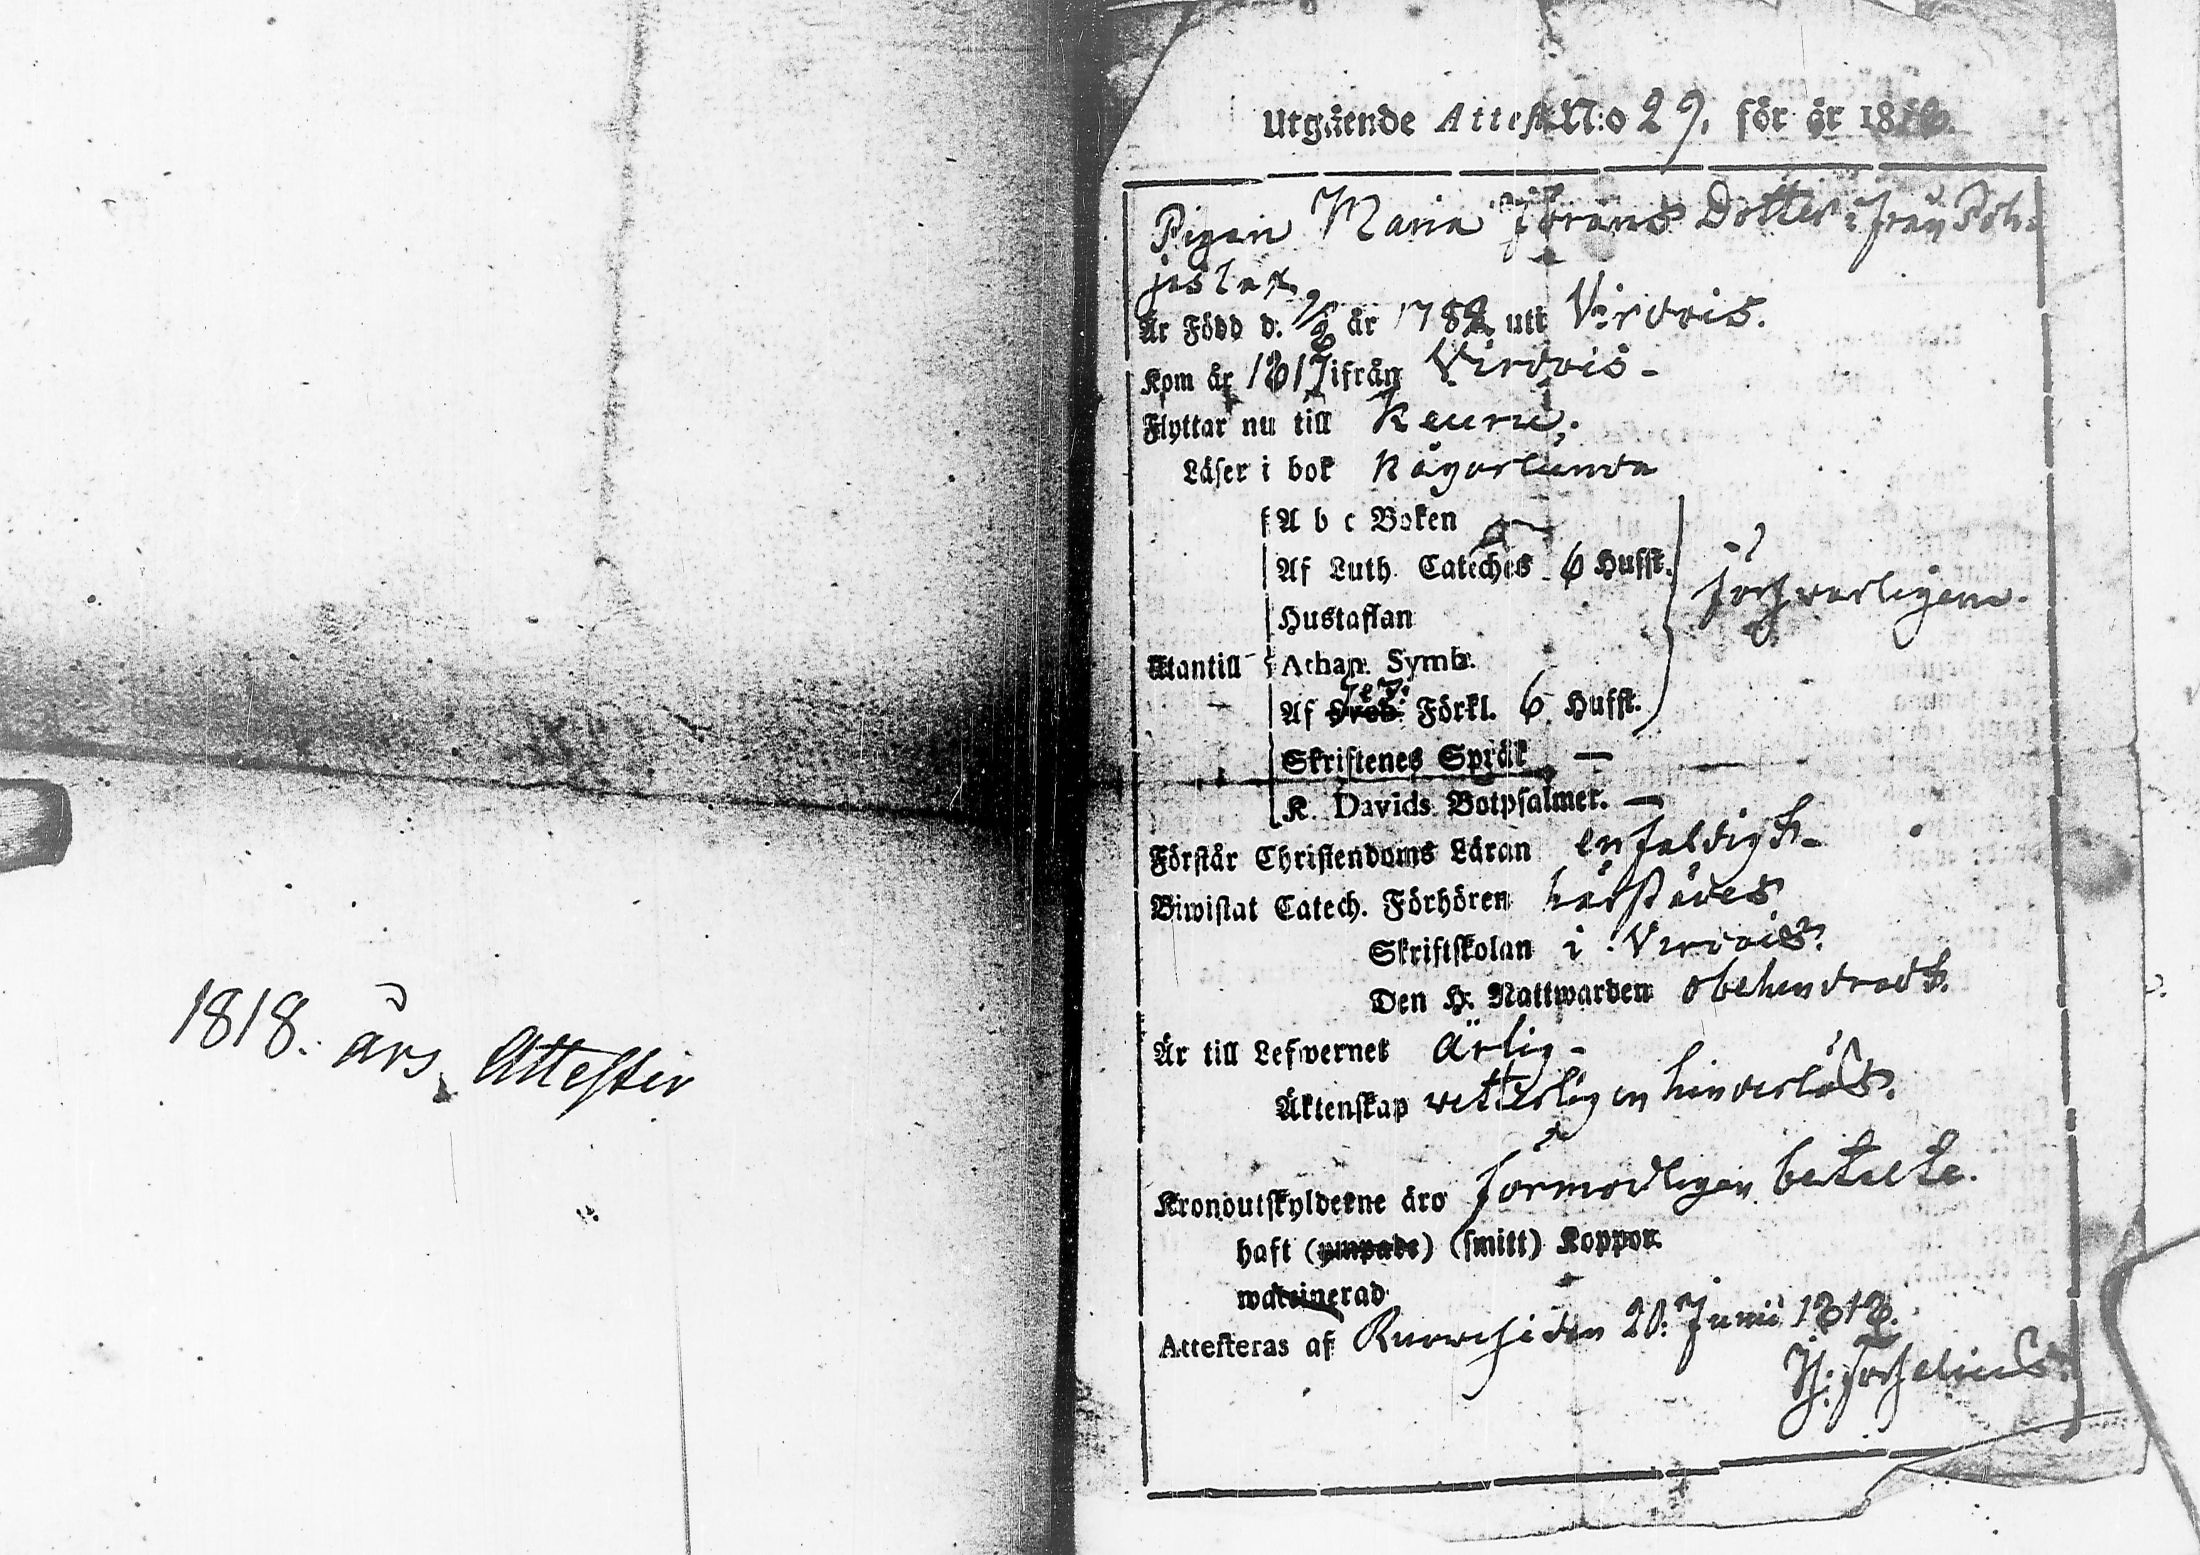 1818. års Attester
Utgående Attest N:o 29. för år 1818.
Pigan Maria Görans Dotter ifrån Poh-
jaslax
Är Född d. år 1782 uti Virdois.
Kom år 1817 ifrån Virdois -
Flyttar nu till Keuru.
Läser i bok någorlunda
A b c Boken —
Af Luth. Cateches 6 Hufst.
Hustaflan
försvarligen.
Utantill Athan. Symb.
Af Förkl. 6 Hufst.
Skriftenes Språk —
K. Davids Botpsalmer. —
Förstår Christendoms Läran enfaldigt -
Biwistat Catech. Förhören härstädes
Skriftskolan i Virdois.
Den H. Nattwarden obehindradt.
Är till Lefwernet ärlig -
Äktenskap vetterligen hinderlös.
Kronoutskylderne äro förmodligen betalte.
haft (ympade) (smitt) Koppor.
waccinerad
Attesteras af Ruovesi den 20. Junii 1818.